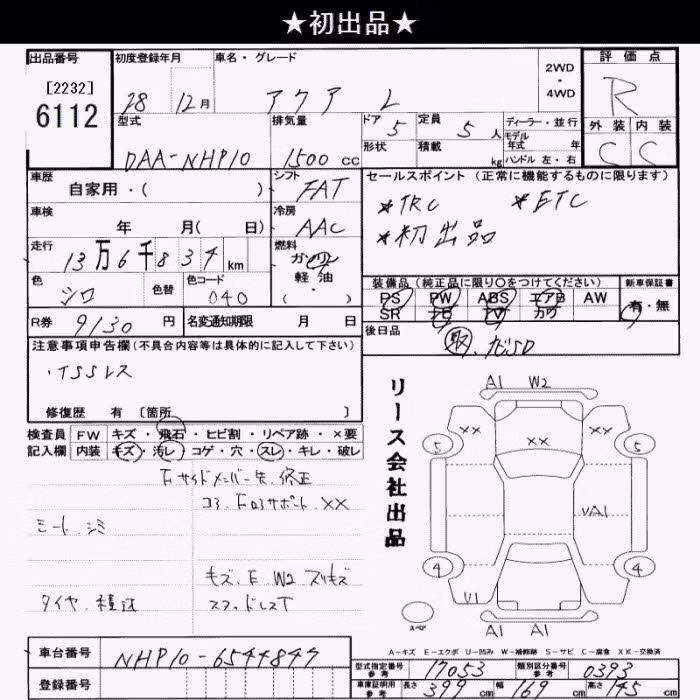 ★初出品★
出品番号 初度登録年月 車名・グレード 2WD・4WD 評価点
[2232] 6112 28 12月 アクア L R
型式 排気量 ドア 5 定員 5人 ディーラー・並行 外装 内装
形状 積載 kg モデル年式 年 C C
DAA-NHP10 1500cc ハンドル 左・右
車歴 自家用・( ) シフト FAT セールスポイント(正常に機能するものに限ります)
車検 年 月(日) 冷房 AAC ★TRC ★ETC
★初出品
走行 13万6千834km 燃料 ガソリン 軽油・( )
色 シロ 色替 色コード 040 装備品(純正品に限り○をつけてください) 新車保証書
PS PW ABS エアB AW 有・無
SR カワ
R券 9130円 名変通知期限 月 日 後日品
注意事項申告欄(不具合内容等は具体的に記入して下さい)
・ISSレス
修復歴 有 [箇所 ]
リース会社出品
検査員 FW キズ・飛石・ヒビ割・リペア跡・×要
記入欄 内装 キズ・汚レ・コゲ・穴・スレ・キレ・破レ
Fサイドメンバー先、修正
コア、Fロアサポート、XX
シート、シミ
キズ、F、W2、スリキズ
タイヤ、積込
A1 W2
XX XX XX
5 5
VA1
4 4
V1
A1 A1
スペア
A-キズ E-エクボ U-凹み W-補修跡 S-サビ C-腐食 XX-交換済
車台番号 NHP10-6544847
登録番号
型式指定番号 参考 17053 類別区分番号 参考 0393
車庫証明用 参考 長さ 399cm 幅 169cm 高さ 145cm